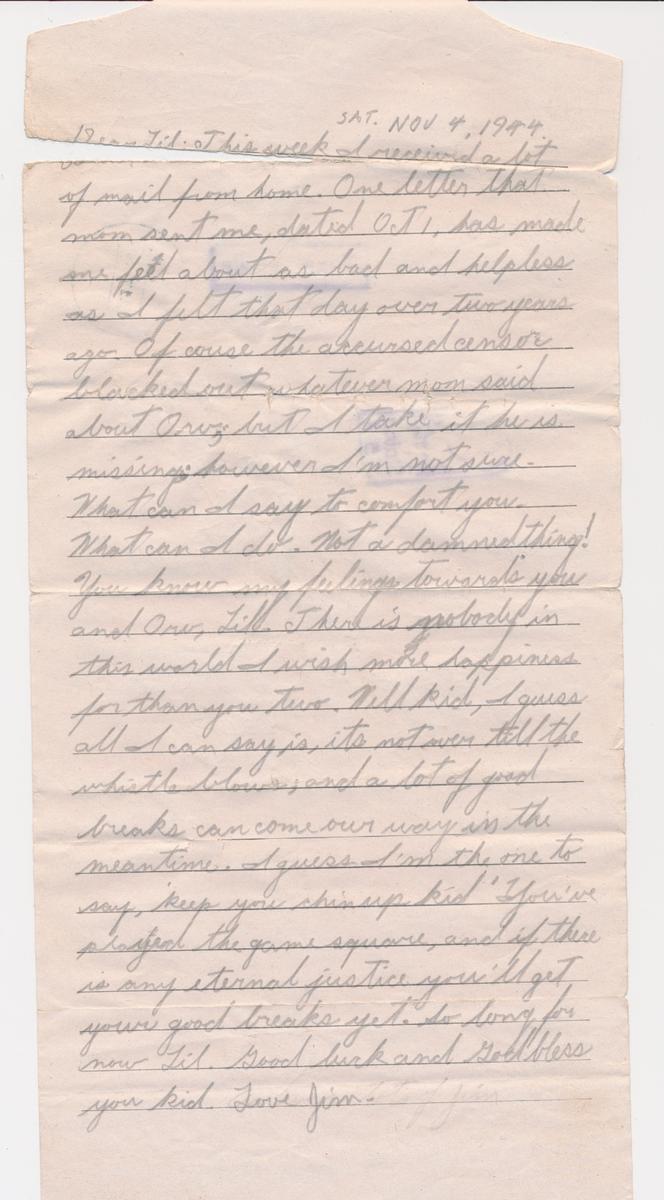 SAT. NOV 4, 1944.
Dear Lil: This week I received a lot
of mail from home. One letter that
mom sent me, dated Oct 1, has made
me feel about as bad and helpless
as I felt that day over two years
ago. Of couse the accursed censor
blacked out whatever mom said
about Orv; but I take it he is
missing; however I'm not sure.
What can I say to comfort you.
What can I do. Not a damned thing!
You know my feelings towards you
and Orv, Lil. There is nobody in
this world I wish more happiness
for than you two. Well kid, I guess
all I can say is, its not over till the
whistle blows; and a lot of good
breaks can come our way in the
meantime. I guess I'm the one to
say, "keep you chin up kid" You've
played the game square, and if there
is any eternal justice you'll get
your good breaks yet. So long for
now Lil. Good luck and God bless
you kid. Love Jim.